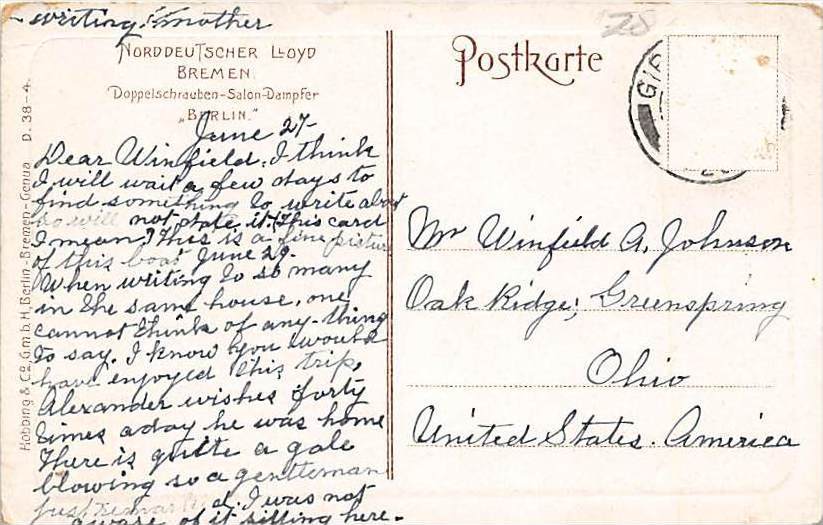 writing. mother
NORDDEUTSCHER LLOYD
BREMEN.
Doppelschrauben-Salon-Dampfer
„BERLIN."
Postkarte
28
GIB
Hobbing & Co., G.m.b.H., Berlin-Bremen-Genua D. 38-4.
June 27-
Dear Winfield, I think
I will wait a few days to
find something to write about
so will not date it. (This card
I mean) This is a fine picture
of this boat June 29.
When writing to so many
in the same house, one
cannot think of any-thing
to say. I know you would
have enjoyed this trip,
Alexander wishes forty
times a day he was home
There is quite a gale
blowing so a gentleman
just remarked. I was not
aware of it sitting here-
Mr Winfield A. Johnson
Oak Ridge; Greenspring
Ohio
United States. America